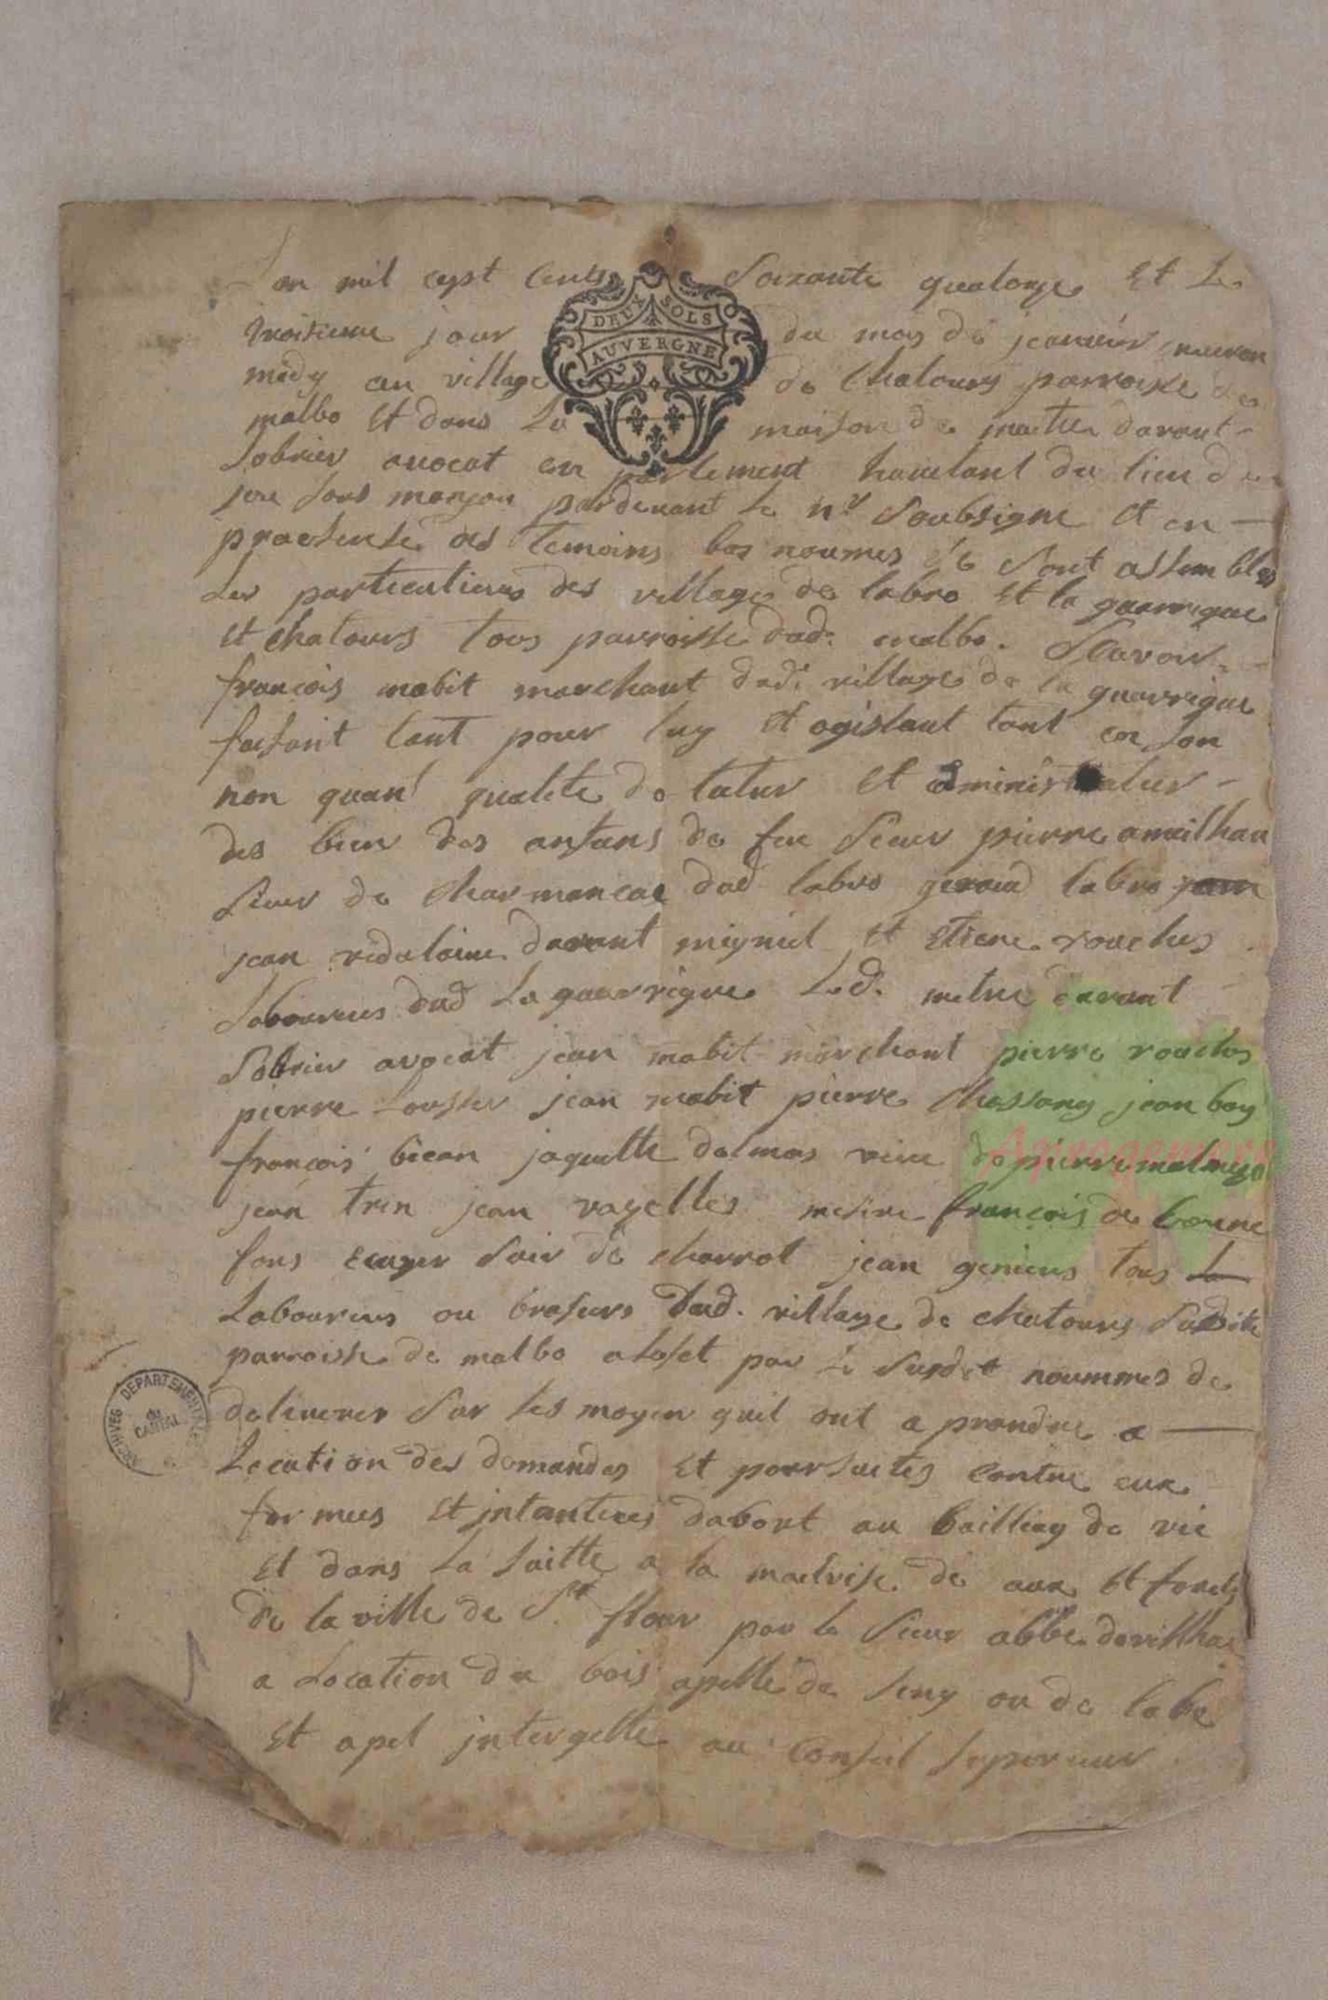 Lan mil cept Cents Soixante quatorze Et Le
DEUX SOLS
AUVERGNE
troisieme jour du mois de jeanvier environ
midy au village de Chatours parroisse de
malbo Et dans La maison de maitre durant
Sobrier avocat en parlement havitant du lieu de
jou sous monjou pardevant Le nre Soubsigne Et en
presence des temoins bas noumes ce Sont assembles
Les particuliers des village de labro Et la guarrigue
Et chatours tous parroisse dud. malbo. Scavoir
francois mabit marchant dud. village de la guarrigue
faisant tant pour luy Et agissant tant en son
non quant qualite de tutur Et administratur
des bien des anfans de feu Sieur pierre ameilhau
Sieur de Charmancac dud labro geraud labro
jean vidalaine durant meyniel Et Etiene rouchés
Laboureus dud La guarrigue Led. metre durant
Sobrier avocat jean mabit marchant pierre rouchés
pierre jean mabit pierre Chassang jean boy
francois bécan jaquette dalmas veive de pierre malmejo
jean trin jean vazelles mesire francois de bonne
fons Ecuyer Sieir de charrot jean genieus tous
Laboureurs ou brasiers dud. village de chatours Susdite
parroisse de malbo par Le Susdit noummes de
deliverer Sur les moyen quil ont a prandre a
Location des demandes Et poursuites contre eux
formees Et intantees dabort au bailliag de vic
Et dans La Suitte a la maitrise de aux Et forets
de la ville de St flour par le Sieur abbé
a Location du bois apellé de Siny ou de labro
Et apel interjette au Conseil Superieur
ARCHIVES DEPARTEMENTALES
du
CANTAL